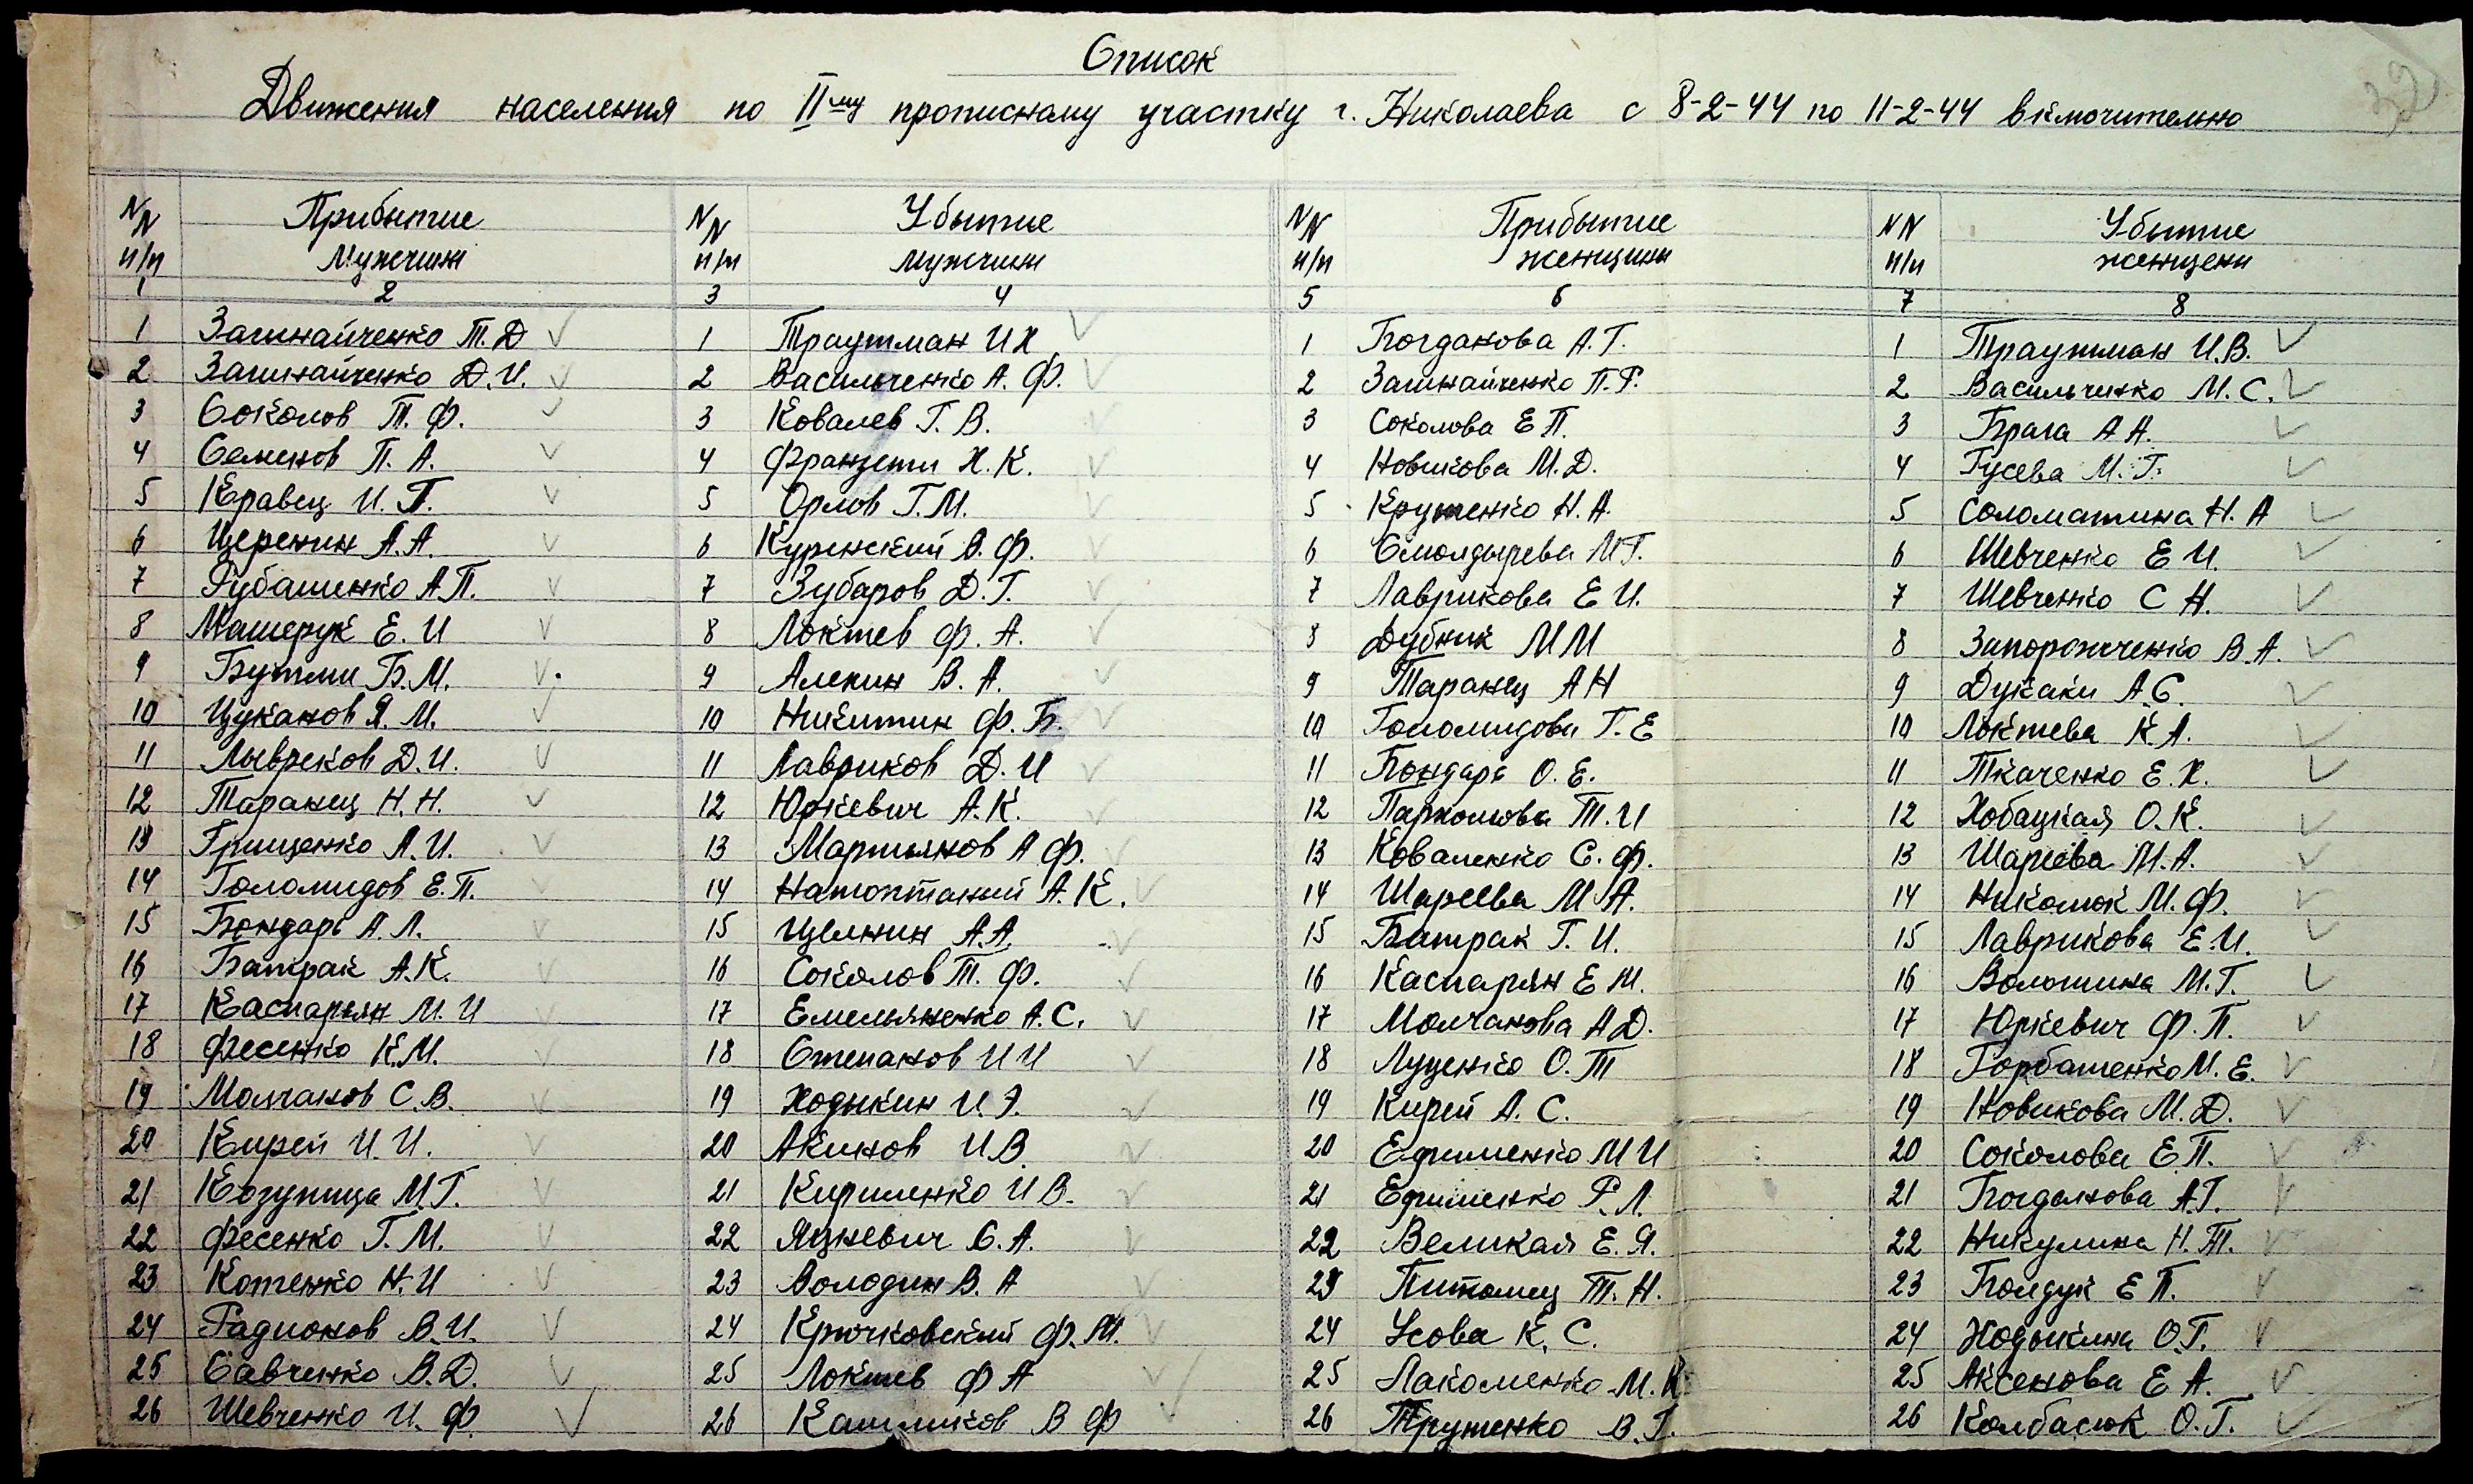 Список
Движения населения по II му прописному участку г. Николаева с 8-2-44 по 11-2-44 включительно
NN Прибытие NN Убытие NN Прибытие NN Убытие
п/п Мужчин п/п Мужчин п/п женщин п/п женщин
1 2 3 4 5 6 7 8
1 Загинайченко Т.Д 1 Траутман И Х 1 Богданова А.Г. 1 Траутман И.В.
2 Загинайченко Д.И. 2 Васильченко А. Ф. 2 Загинайченко П.Р. 2 Васильченко М.С.
3 Соколов Т. Ф. 3 Ковалев Г. В. 3 Соколова Е П. 3 Брага А А.
4 Семенов П. А. 4 Францети Х. К. 4 Новикова М.Д. 4 Гусева М.Г.
5 Кравец И. П. 5 Орлов Г.М. 5 Крутенко Н.А. 5 Соломатина Н. А
6 Церенин А.А. 6 Куринский В. Ф. 6 Смолдырева М Г. 6 Шевченко Е И.
7 Рубашенко А.П. 7 Зубаров Д.Г. 7 Лаврикова Е И. 7 Шевченко С Н.
8 Машерук Е. И 8 Локтев Ф. А. 8 Дубник М М 8 Запорожченко В.А.
9 Бутми Б.М. 9 Алекин В. А. 9 Таранец А Н 9 Дукаки А.С.
10 Цуканов Я. М. 10 Никитин Ф. Б. 10 Голомидова Г. Е 10 Локтева К.А.
11 Лывреков Д.И. 11 Лавриков Д. И 11 Бондарь О. Е. 11 Ткаченко Е. Х.
12 Таранец Н. Н. 12 Юркевич А.К. 12 Пархомова Т.И 12 Хобацкая О.К.
13 Грищенко А.И. 13 Мартьянов А Ф. 13 Коваленко С. Ф. 13 Шареева М.А.
14 Голомидов Е.П. 14 Натоптаный А.К. 14 Шареева М А. 14 Николюк М. Ф.
15 Бондарь А. Л. 15 Целнин А.А. 15 Батрак Г. И. 15 Лаврикова Е.И.
16 Батрак А.К. 16 Соколов Т. Ф. 16 Каспарян Е М. 16 Волошина М.Г.
17 Каспарьян М. И 17 Емельяненко А.С. 17 Молчанова А Д. 17 Юркевич Ф. П.
18 Фесенко К.М. 18 Степанов И И 18 Луценко О. Т 18 Горбашенко М. Е.
19 Молчанов С.В. 19 Ходыкин И. Э. 19 Кирей А. С. 19 Новикова М.Д.
20 Кирей И. И. 20 Акинов И.В. 20 Ефименко М И 20 Соколова Е.П.
21 Козупица М.Г. 21 Кириленко И В. 21 Ефименко Р. Л. 21 Богданова А.Г.
22 Фесенко Г.М. 22 Яцкевич С. А. 22 Великая Е. Я. 22 Никулина Н. Т.
23 Котенко Н. И 23 Володин В. А 23 Питомец Т. Н. 23 Болдук Е П.
24 Радионов В.И. 24 Крючковский Ф. М. 24 Усова К. С. 24 Ходыкина О.Г.
25 Савченко В.Д. 25 Локтев Ф А 25 Лакоменко М. 25 Аксенова Е А.
26 Шевченко И. Ф. 26 Кашликов В Ф 26 Трутенко В.Г. 26 Колбасюк О.Г.